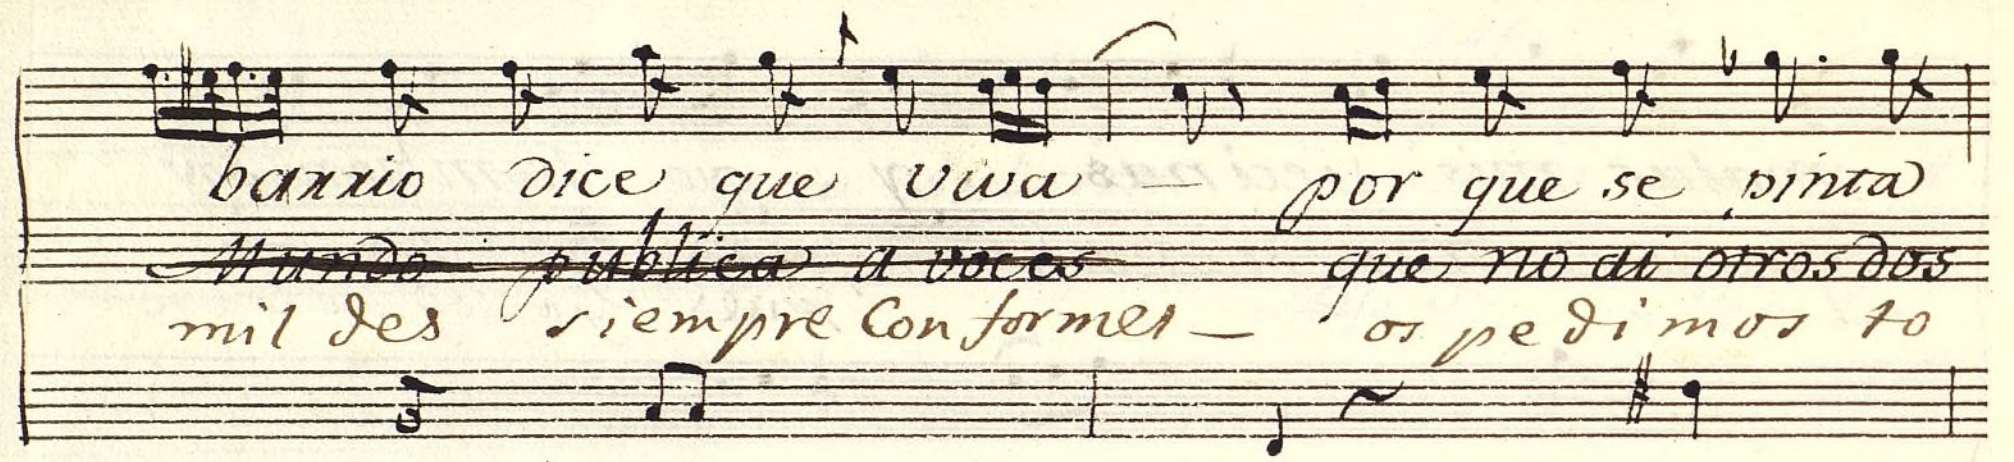 barrio dice que viva – por que se pinta
Mundo publica a voces que no di otros dos
mil des siempre Conformes – os pedimos to